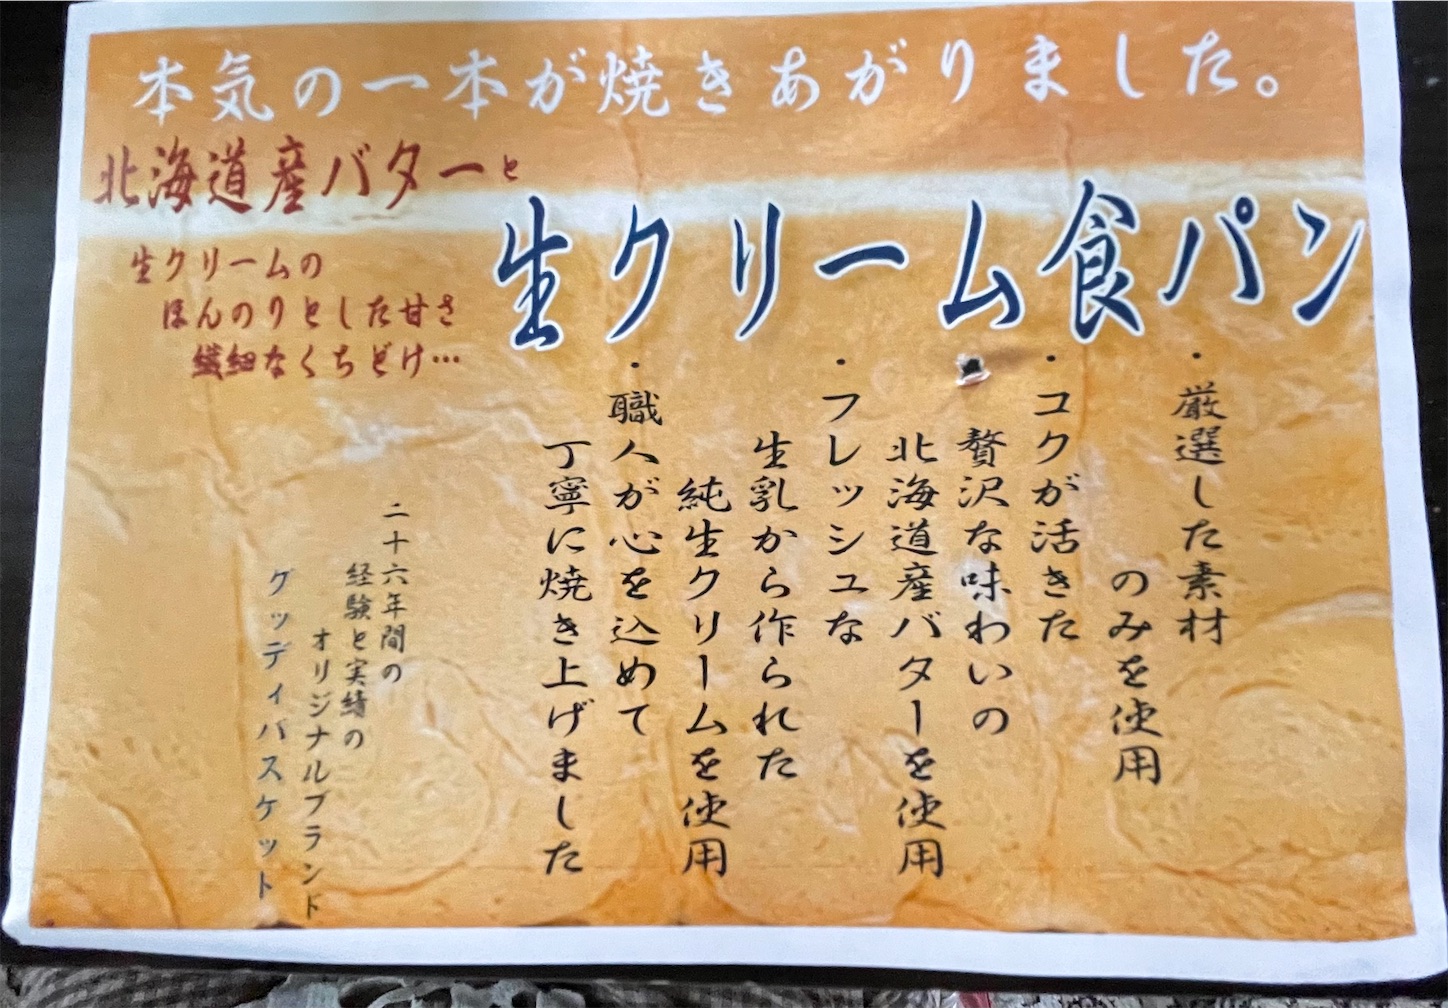 本気の一本が焼きあがりました。
北海道産バターと
生クリーム食パン
生クリームの
ほんのりとした甘さ
繊細なくちどけ…
・厳選した素材
のみを使用
・コクが活きた
贅沢な味わいの
北海道産バターを使用
・フレッシュな
生乳から作られた
純生クリームを使用
・職人が心を込めて
丁寧に焼き上げました
二十六年間の
経験と実績の
オリジナルブランド
グッディバスケット